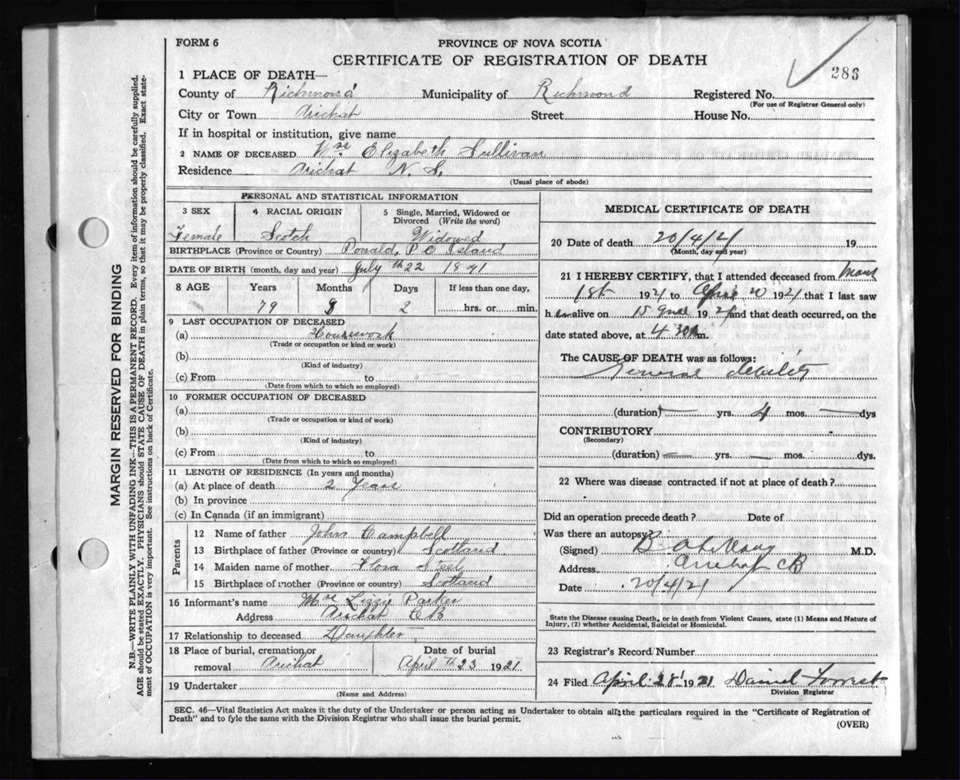 FORM 6
PROVINCE OF NOVA SCOTIA
CERTIFICATE OF REGISTRATION OF DEATH
286
1 PLACE OF DEATH—
County of Richmond Municipality of Richmond Registered No.
(For use of Registrar General only)
City or Town Arichat Street House No.
If in hospital or institution, give name
2 NAME OF DECEASED Mrs. Elizabeth Sullivan
Residence Arichat N. S.
(Usual place of abode)
PERSONAL AND STATISTICAL INFORMATION
3 SEX 4 RACIAL ORIGIN 5 Single, Married, Widowed or Divorced (Write the word)
Female Scotch Widowed
BIRTHPLACE (Province or Country) P E Island
DATE OF BIRTH (month, day and year) July th 22 1841
8 AGE Years Months Days If less than one day,
79 8 2 hrs. or min.
9 LAST OCCUPATION OF DECEASED
(a) Housework
(Trade or occupation or kind or work)
(b)
(Kind of industry)
(c) From to
(Date from which to which so employed)
10 FORMER OCCUPATION OF DECEASED
(a)
(Trade or occupation or kind of work)
(b)
(Kind of industry)
(c) From to
(Date from which to which so employed)
11 LENGTH OF RESIDENCE (In years and months)
(a) At place of death 2 Years
(b) In province
(c) In Canada (if an immigrant)
Parents
12 Name of father John Campbell
13 Birthplace of father (Province or country) Scotland
14 Maiden name of mother Flora Steel
15 Birthplace of mother (Province or country) Scotland
16 Informant's name Mrs Lizzie Parker
Address Arichat C B
17 Relationship to deceased Daughter
18 Place of burial, cremation or removal Arichat
Date of burial April th 23 1921
19 Undertaker
(Name and Address)
MEDICAL CERTIFICATE OF DEATH
20 Date of death 20/4/21 19
(Month, day and year)
21 I HEREBY CERTIFY, that I attended deceased from
1st 1921 to April 20 1921 that I last saw
h er alive on 15 1921 and that death occurred, on the
date stated above, at 4 30 m.
The CAUSE OF DEATH was as follows:
General debility
(duration) — yrs. 4 mos. — dys
CONTRIBUTORY
(Secondary)
(duration) — yrs. — mos. dys.
22 Where was disease contracted if not at place of death?
Did an operation precede death? Date of
Was there an autopsy?
(Signed) M.D.
Address Arichat CB
Date 20/4/21
State the Disease causing Death, or in death from Violent Causes, state (1) Means and Nature of
Injury, (2) whether Accidental, Suicidal or Homicidal.
23 Registrar's Record Number
24 Filed April 28 1921 Daniel Forrest
Division Registrar
SEC. 46—Vital Statistics Act makes it the duty of the Undertaker or person acting as Undertaker to obtain all the particulars required in the "Certificate of Registration of
Death" and to fyle the same with the Division Registrar who shall issue the burial permit.
(OVER)
MARGIN RESERVED FOR BINDING
N.B.—WRITE PLAINLY WITH UNFADING INK—THIS IS A PERMANENT RECORD. Every item of information should be carefully supplied.
AGE should be stated EXACTLY. PHYSICIANS should STATE CAUSE OF DEATH in plain terms, so that it may be properly classified. Exact state-
ment of OCCUPATION is very important. See instructions on back of Certificate.